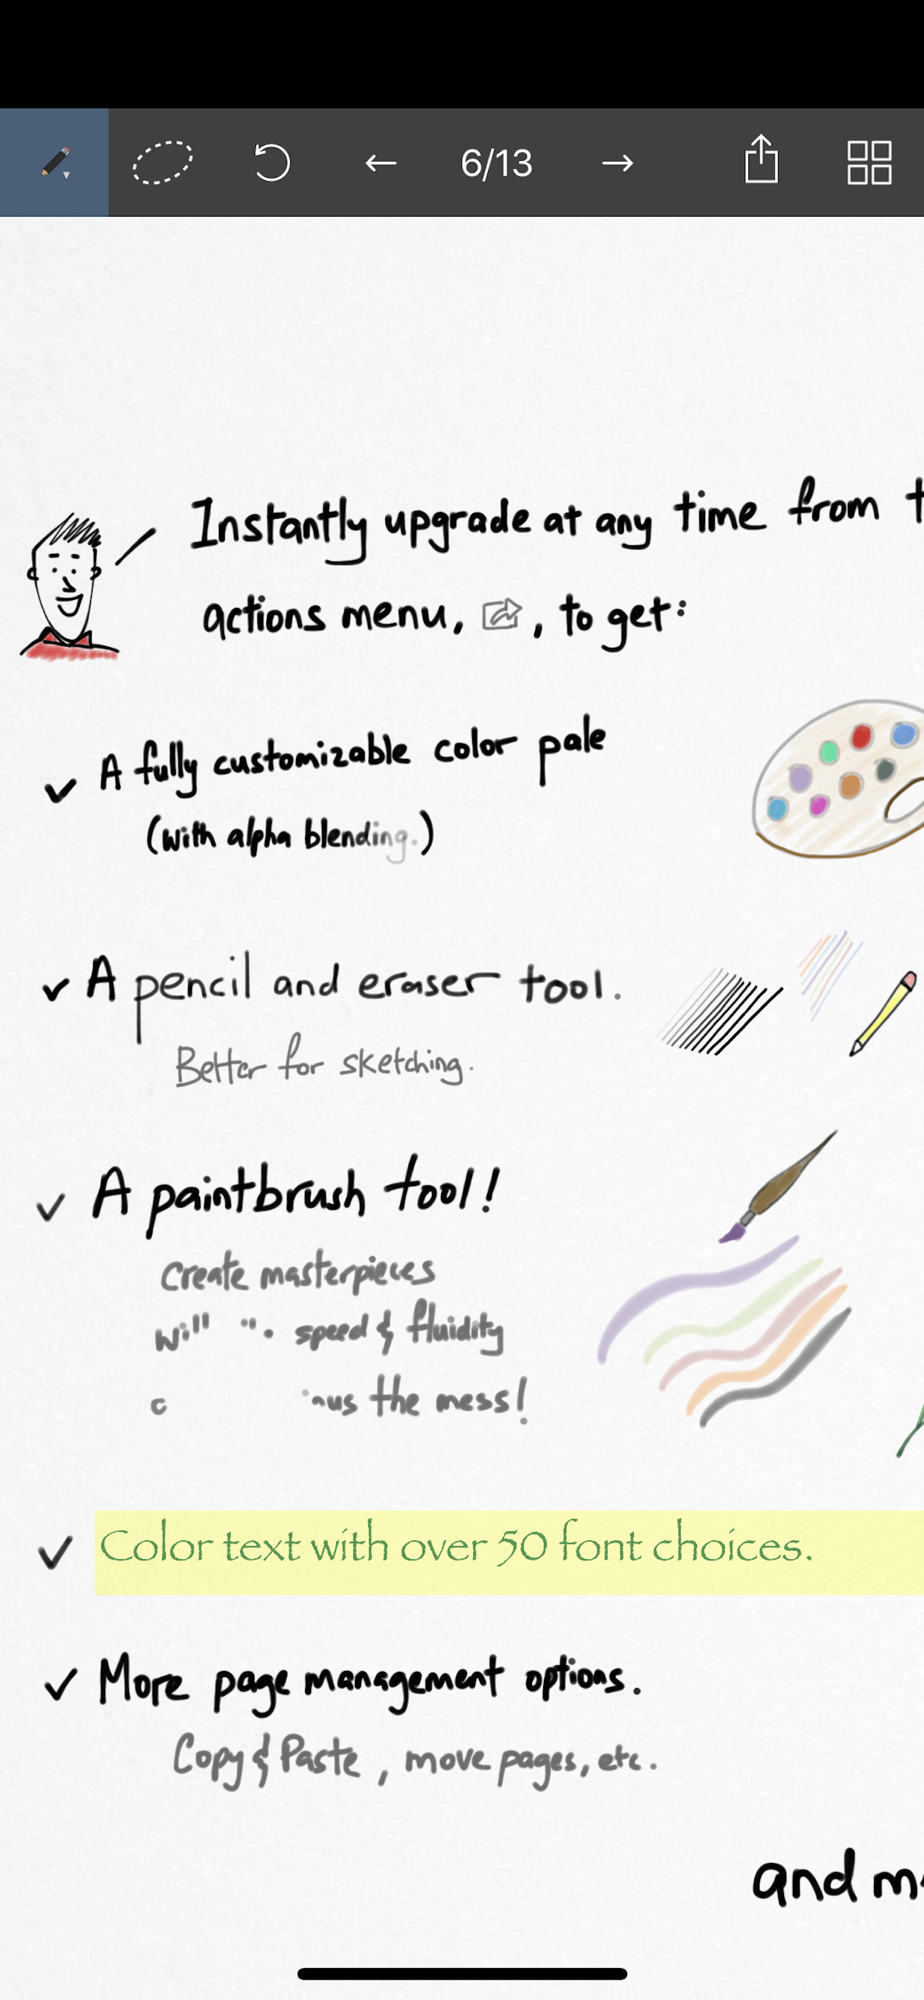 6/13
Instantly upgrade at any time from t
actions menu, , to get:
✓ A fully customizable color pale
(with alpha blending.)
✓ A pencil and eraser tool.
Better for sketching.
✓ A paintbrush tool!
Create masterpieces
speed & fluidity
the mess!
✓ Color text with over 50 font choices.
✓ More page management options.
Copy & Paste, move pages, etc.
and m